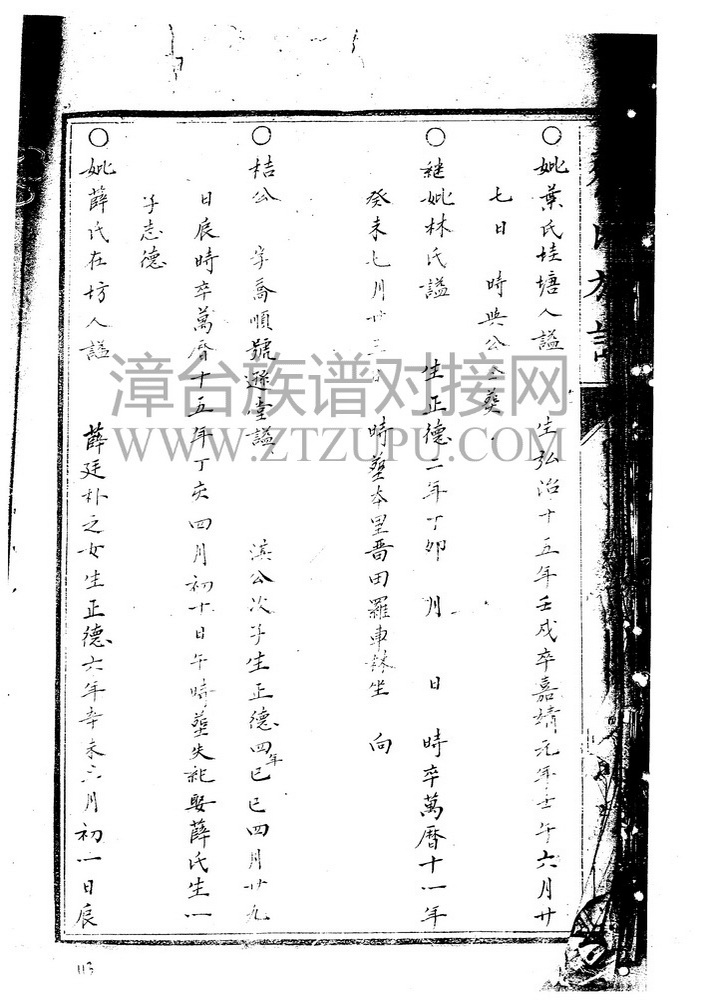 ○妣葉氏珪塘人諡 生弘治十五年壬戌卒嘉靖元年壬午六月廿
七日 時與公仝葬
○継妣林氏諡 生正德二年丁卯 月 日 時卒萬曆十一年
癸未七月廿三日 時塟本里畨田羅車 坐 向
○桔公 字喬順號遜堂諡 滇公次子生正德四年己巳四月廿九
日辰時卒萬曆十五年丁亥四月初十日午時塟失祀娶薛氏生一
子志德
○妣薛氏在坊人諡 薛廷朴之女生正德六年辛未六月初一日辰
漳台族谱对接网
WWW.ZTZUPU.COM
113